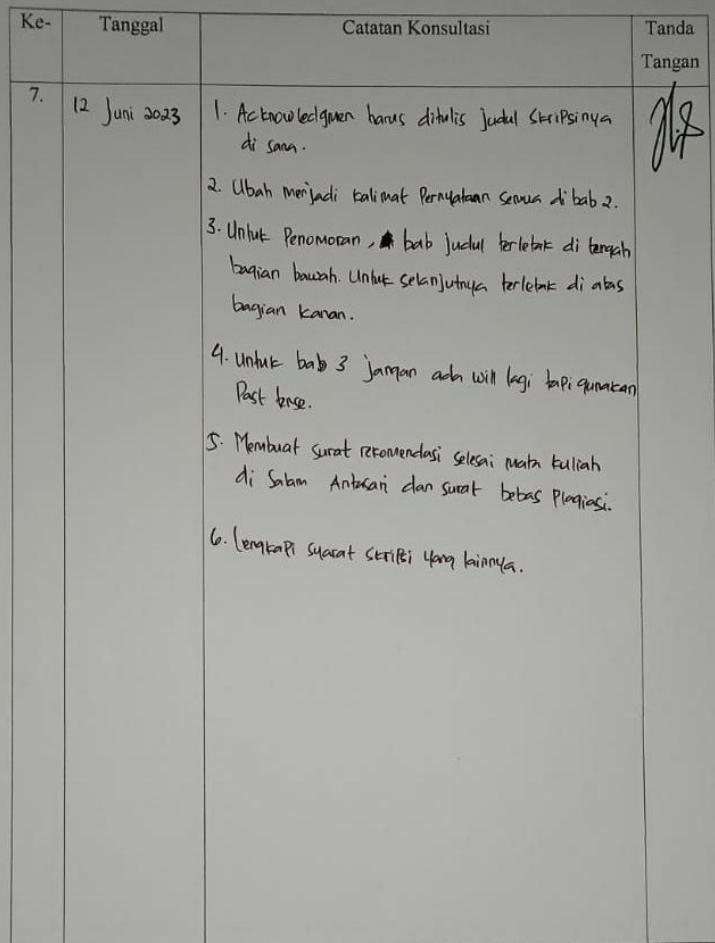 Ke- Tanggal Catatan Konsultasi Tanda
Tangan
7. 12 Juni 2023 1. Acknowledgmen harus ditulis judul skripsinya
di sana.
2. Ubah menjadi kalimat Pernyataan semua di bab 2.
3. Untuk Penomoran, bab judul terletak di tengah
bagian bawah. Untuk selanjutnya terletak di atas
bagian kanan.
4. Untuk bab 3 jangan ada will lagi tapi gunakan
Past tense.
5. Membuat surat rekomendasi selesai mata kuliah
di Salam Antasari dan surat bebas Plagiasi.
6. Lengkapi syarat skripsi yang lainnya.